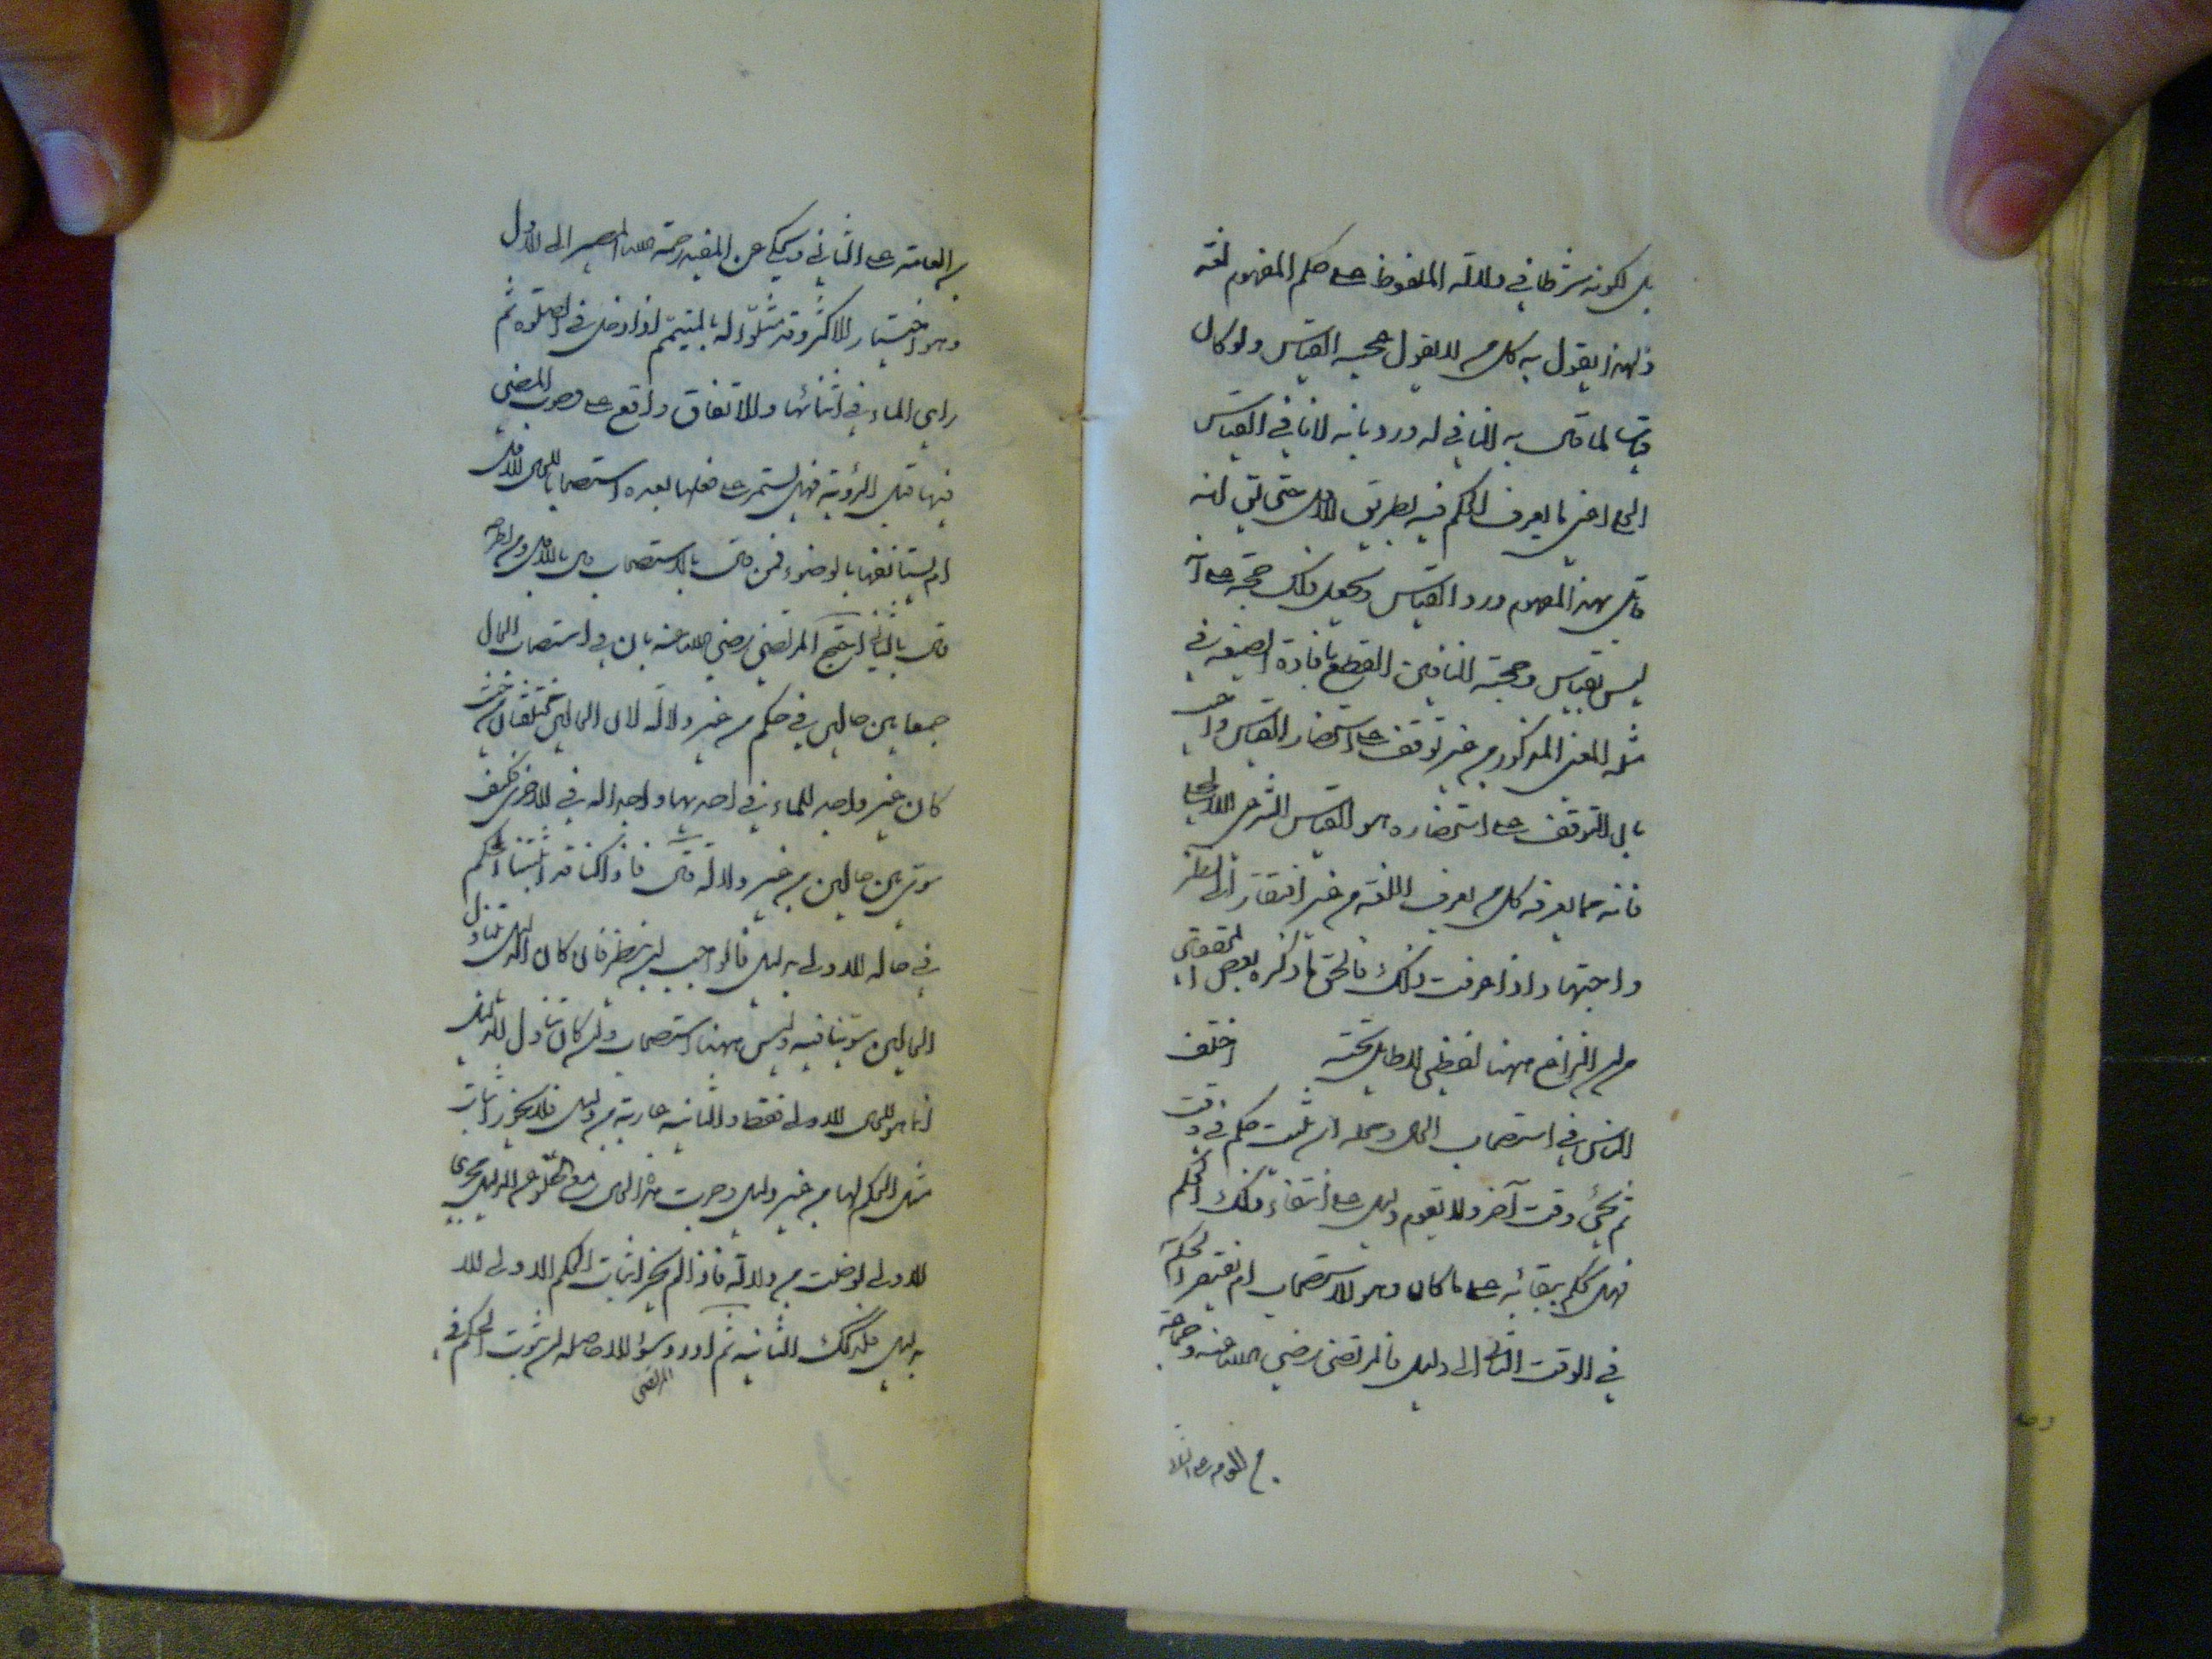 بل لكونه شرطا في دلالة الملفوظ على حكم المفهوم لغة
ولهذا يقول به كل من لا يقول بحجية القياس ولو كان
قياسا لما قال به النافي له ورد بانه لا نافي للقياس
الجلي اعني ما يعرف الحكم فيه بطريق الاولى حتى يق انه
قائل بهذا المفهوم ورد القياس ويجعل ذلك حجة على انه
ليس بقياس وحجة النافين القطع بافادة الصيغة في
مثله المعنى المذكور من غير توقف على استحضار القياس واجيب
بان المتوقف على استحضاره هو القياس الشرعي لا الجلي
فانه مما يعرفه كل من يعرف اللغة من غير افتقار الى نظر
واجتهاد اذا عرفت ذلك فالحق ما ذكره بعض المحققين
من ان النزاع ههنا لفظي لا طايل تحته اختلف
الناس في استصحاب الحال ومحله ان يثبت حكم في وقت
ثم يجئ وقت آخر ولا يقوم دليل على انتفاء ذلك الحكم
فهل يحكم ببقائه على ما كان وهو الاستصحاب ام يفتقر الحكم به
في الوقت الثاني الى دليل فالمرتضى رضي الله عنه وجماعة
من العامة على الثاني
من العامة على الثاني ويحكى عن المفيد رحمة الله المصير الى الاول
وهو اختيار الاكثر وقد مثلوا له بالمتيمم اذا دخل في الصلوة ثم
راى الماء في اثنائها والاتفاق واقع على وجوب المضي
فيها قبل الرؤية فهل يستمر على فعلها بعده استصحابا للحال الاول
ام يستانفها بالوضوء فمن قال بالاستصحاب قال بالاول ومن اطرحه
قال بالثاني احتج المرتضى رضي الله عنه بان في استصحاب الحال
جمعا بين حالين في حكم من غير دلالة لان الحالين مختلفان من حيث
كان غير واجد للماء في احدهما واجدا له في الاخرى فكيف
سوى بين حالين من غير دلالة قال فاذا كنا قد اثبتنا الحكم
في حالة الاولى بدليل فالواجب ان ينظر فان كان الدليل يتناول
الحالين سوينا فيه وليس ههنا استصحاب وان كان تناول الدليل
انما هو للحال الاولى فقط والثانية عارية من دليل فلا يجوز اثبات
مثل الحكم لها من غير دليل وجرت هذه الحال مع الخلو عن الدليل مجرى
الاولى لو خلت من دلالة فاذا لم يجز اثبات الحكم الاولى الا
بدليل فكذلك الثانية ثم اورد سؤالا حاصله ان ثبوت الحكم في
المرتضى